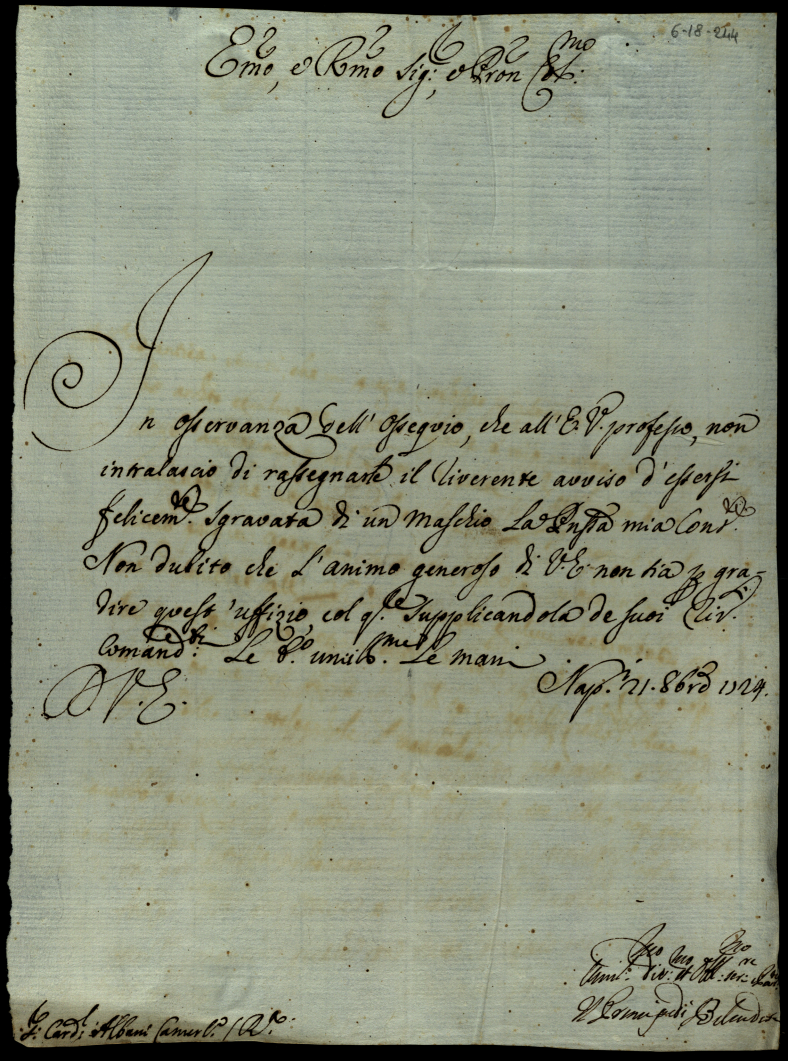 6-18-244
Emo, e Rmo Sig:, e Pron Colmo:
In osservanza dell' ossequio, che all' E. V. professo, non
intralascio di rassegnarle il riverente avviso d'essersi
felicemte. sgravata di un maschio La Pnssa mia Conste.
Non dubito che L'animo generoso di V.E. non sia p gra-
dire quest'uffizio, col qle. supplicandola de suoi riv.ti
Comandti. Le bo. umilme. Le mani
D. V. E.
Nap.i 21. 8bre 1724.
Il Principe di
Sr. Cardl. Albani Camerlo. / Ra.